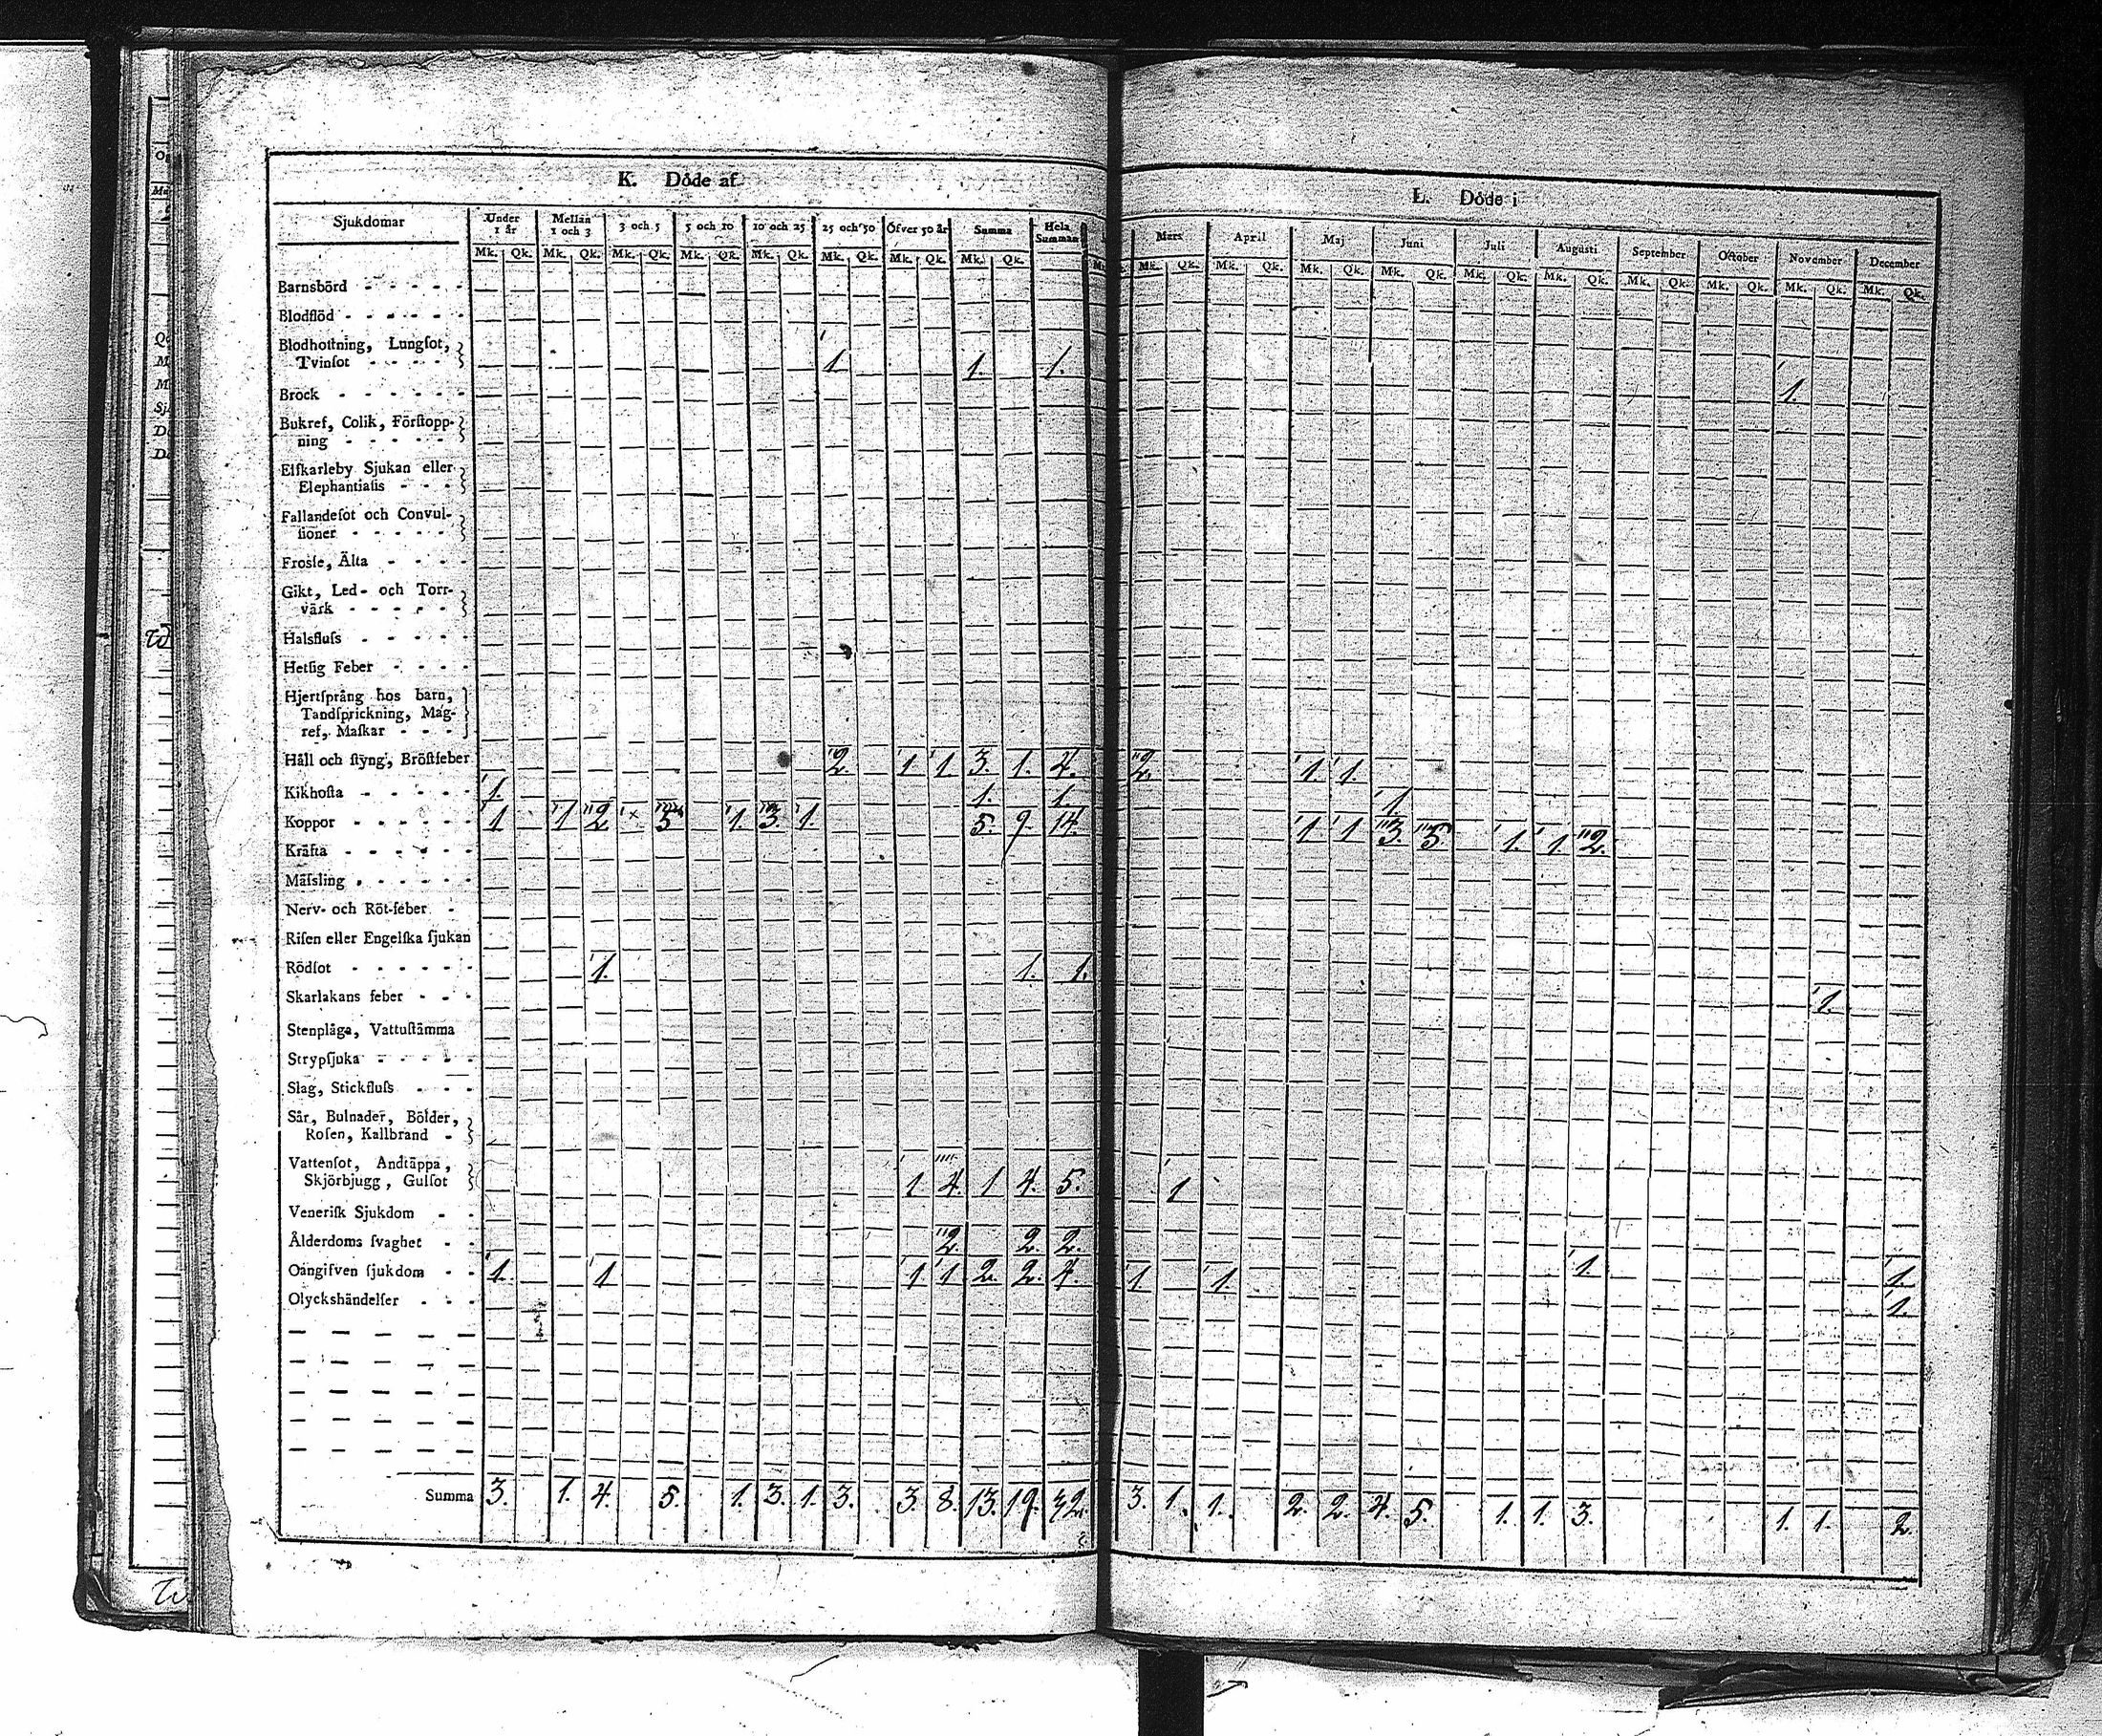 K. Döde af
L. Döde i
Sjukdomar
Under 1 år
Mellan 1 och 3
3 och 5
5 och 10
10 och 25
25 och 50
Öfver 50 år
Summa
Hela Summan
Mars
April
Maj
Juni
Juli
Augusti
September
October
November
December
Mk. Qk. Mk. Qk. Mk. Qk. Mk. Qk. Mk. Qk. Mk. Qk. Mk. Qk. Mk. Qk.
Mk. Qk. Mk. Qk. Mk. Qk. Mk. Qk. Mk. Qk. Mk. Qk. Mk. Qk. Mk. Qk. Mk. Qk. Mk. Qk.
Barnsbörd
Blodflöd
Blodhostning, Lungsot,
Tvinsot 1 1. 1. 1.
Bröck
Bukref, Colik, Förstopp-
ning
Elfkarleby Sjukan eller
Elephantiasis
Fallandesot och Convul-
sioner
Frossa, Älta
Gikt, Led- och Torr-
värk
Halsfluss
Hetsig Feber
Hjertsprång hos barn,
Tandsprickning, Mag-
ref, Maskar
Håll och styng, Bröstfeber 2. 1 1. 3. 1. 4. 2. 1. 1.
Kikhosta 1. 1. 1. 1.
Koppor 1 1 2 5 1. 3. 1. 5. 9. 14. 1 1 3. 5. 1. 1. 2.
Kräfta
Mässling
Nerv- och Röt-feber
Risen eller Engelska sjukan
Rödsot 1. 1. 1. 1.
Skarlakans feber
Stenplåga, Vattustämma
Strypsjuka
Slag, Stickfluss
Sår, Bulnader, Bölder,
Rosen, Kallbrand
Vattensot, Andtäppa,
Skjörbjugg, Gulsot 1. 4. 1 4. 5. 1
Venerisk Sjukdom
Ålderdoms svaghet 2. 2. 2. 1. 1.
Oangifven sjukdom 1. 1 1 1 2. 2. 4. 1 1. 1.
Olyckshändelser
Summa 3. 1. 4. 5. 1. 3. 1. 3. 3. 8. 13. 19. 32. 3. 1. 1. 2. 2. 4. 5. 1. 1. 3. 1. 1. 2.